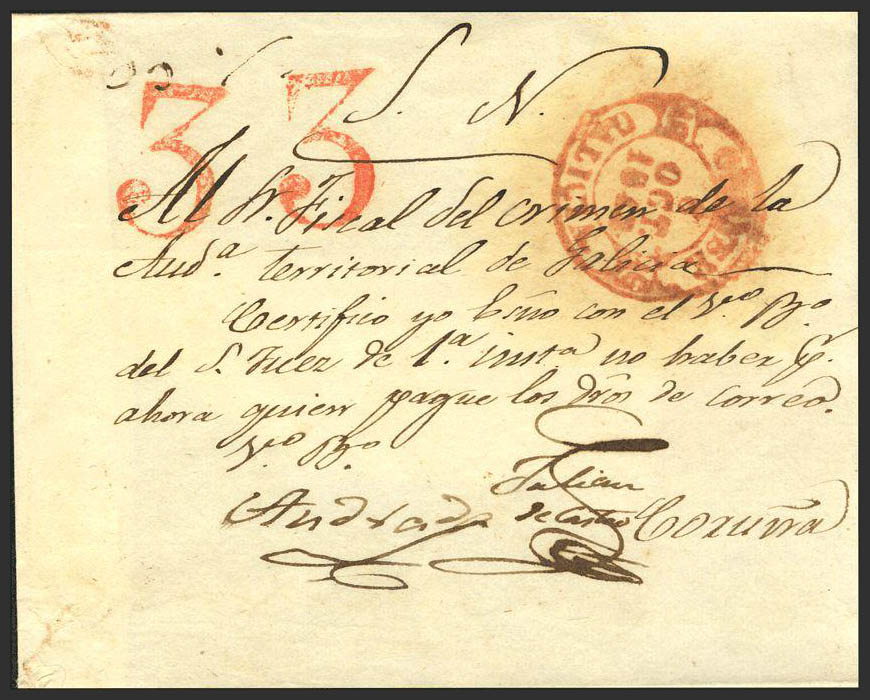 S. N.
33
Al Sr. Fiscal del crimen de la
Auda. territorial de Galicia
Certifico yo Esno con el Vo. Bo.
del S. Juez de 1a. insta no haber pr.
ahora quien pague los dros de correo.
Vo. Bo.
Julian
Andrade de Castro Coruña
GALICIA
OCT